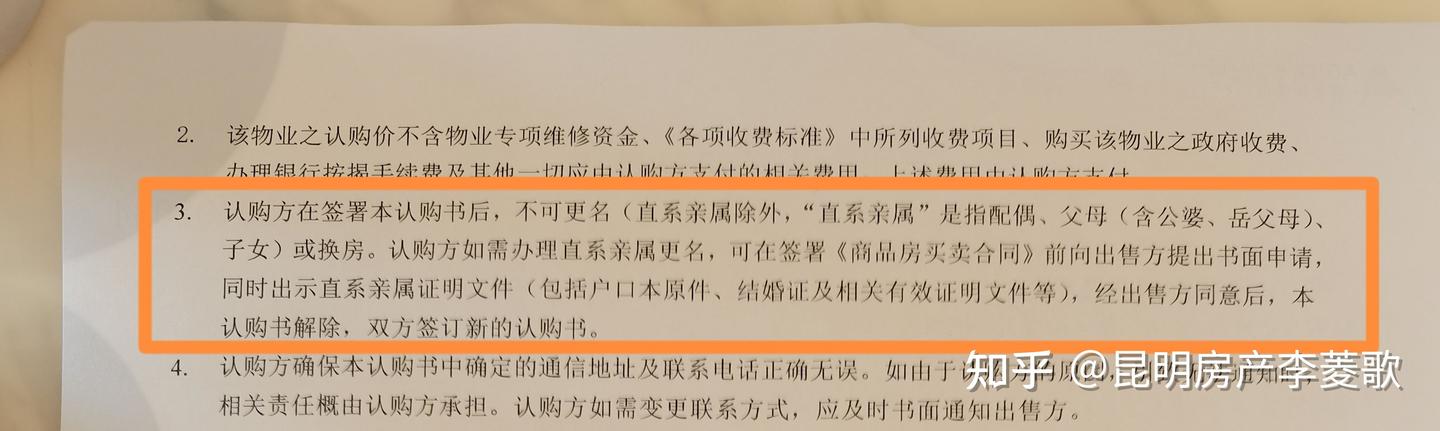 2. 该物业之认购价不含物业专项维修资金、《各项收费标准》中所列收费项目、购买该物业之政府收费、
办理银行按揭手续费及其他一切应由认购方支付的相关费用，上述费用由认购方支付
3. 认购方在签署本认购书后，不可更名（直系亲属除外，“直系亲属”是指配偶、父母（含公婆、岳父母）、
子女）或换房。认购方如需办理直系亲属更名，可在签署《商品房买卖合同》前向出售方提出书面申请，
同时出示直系亲属证明文件（包括户口本原件、结婚证及相关有效证明文件等），经出售方同意后，本
认购书解除，双方签订新的认购书。
4. 认购方确保本认购书中确定的通信地址及联系电话正确无误。如由于
相关责任概由认购方承担。认购方如需变更联系方式，应及时书面通知出售方。
知乎 @昆明房产李菱歌